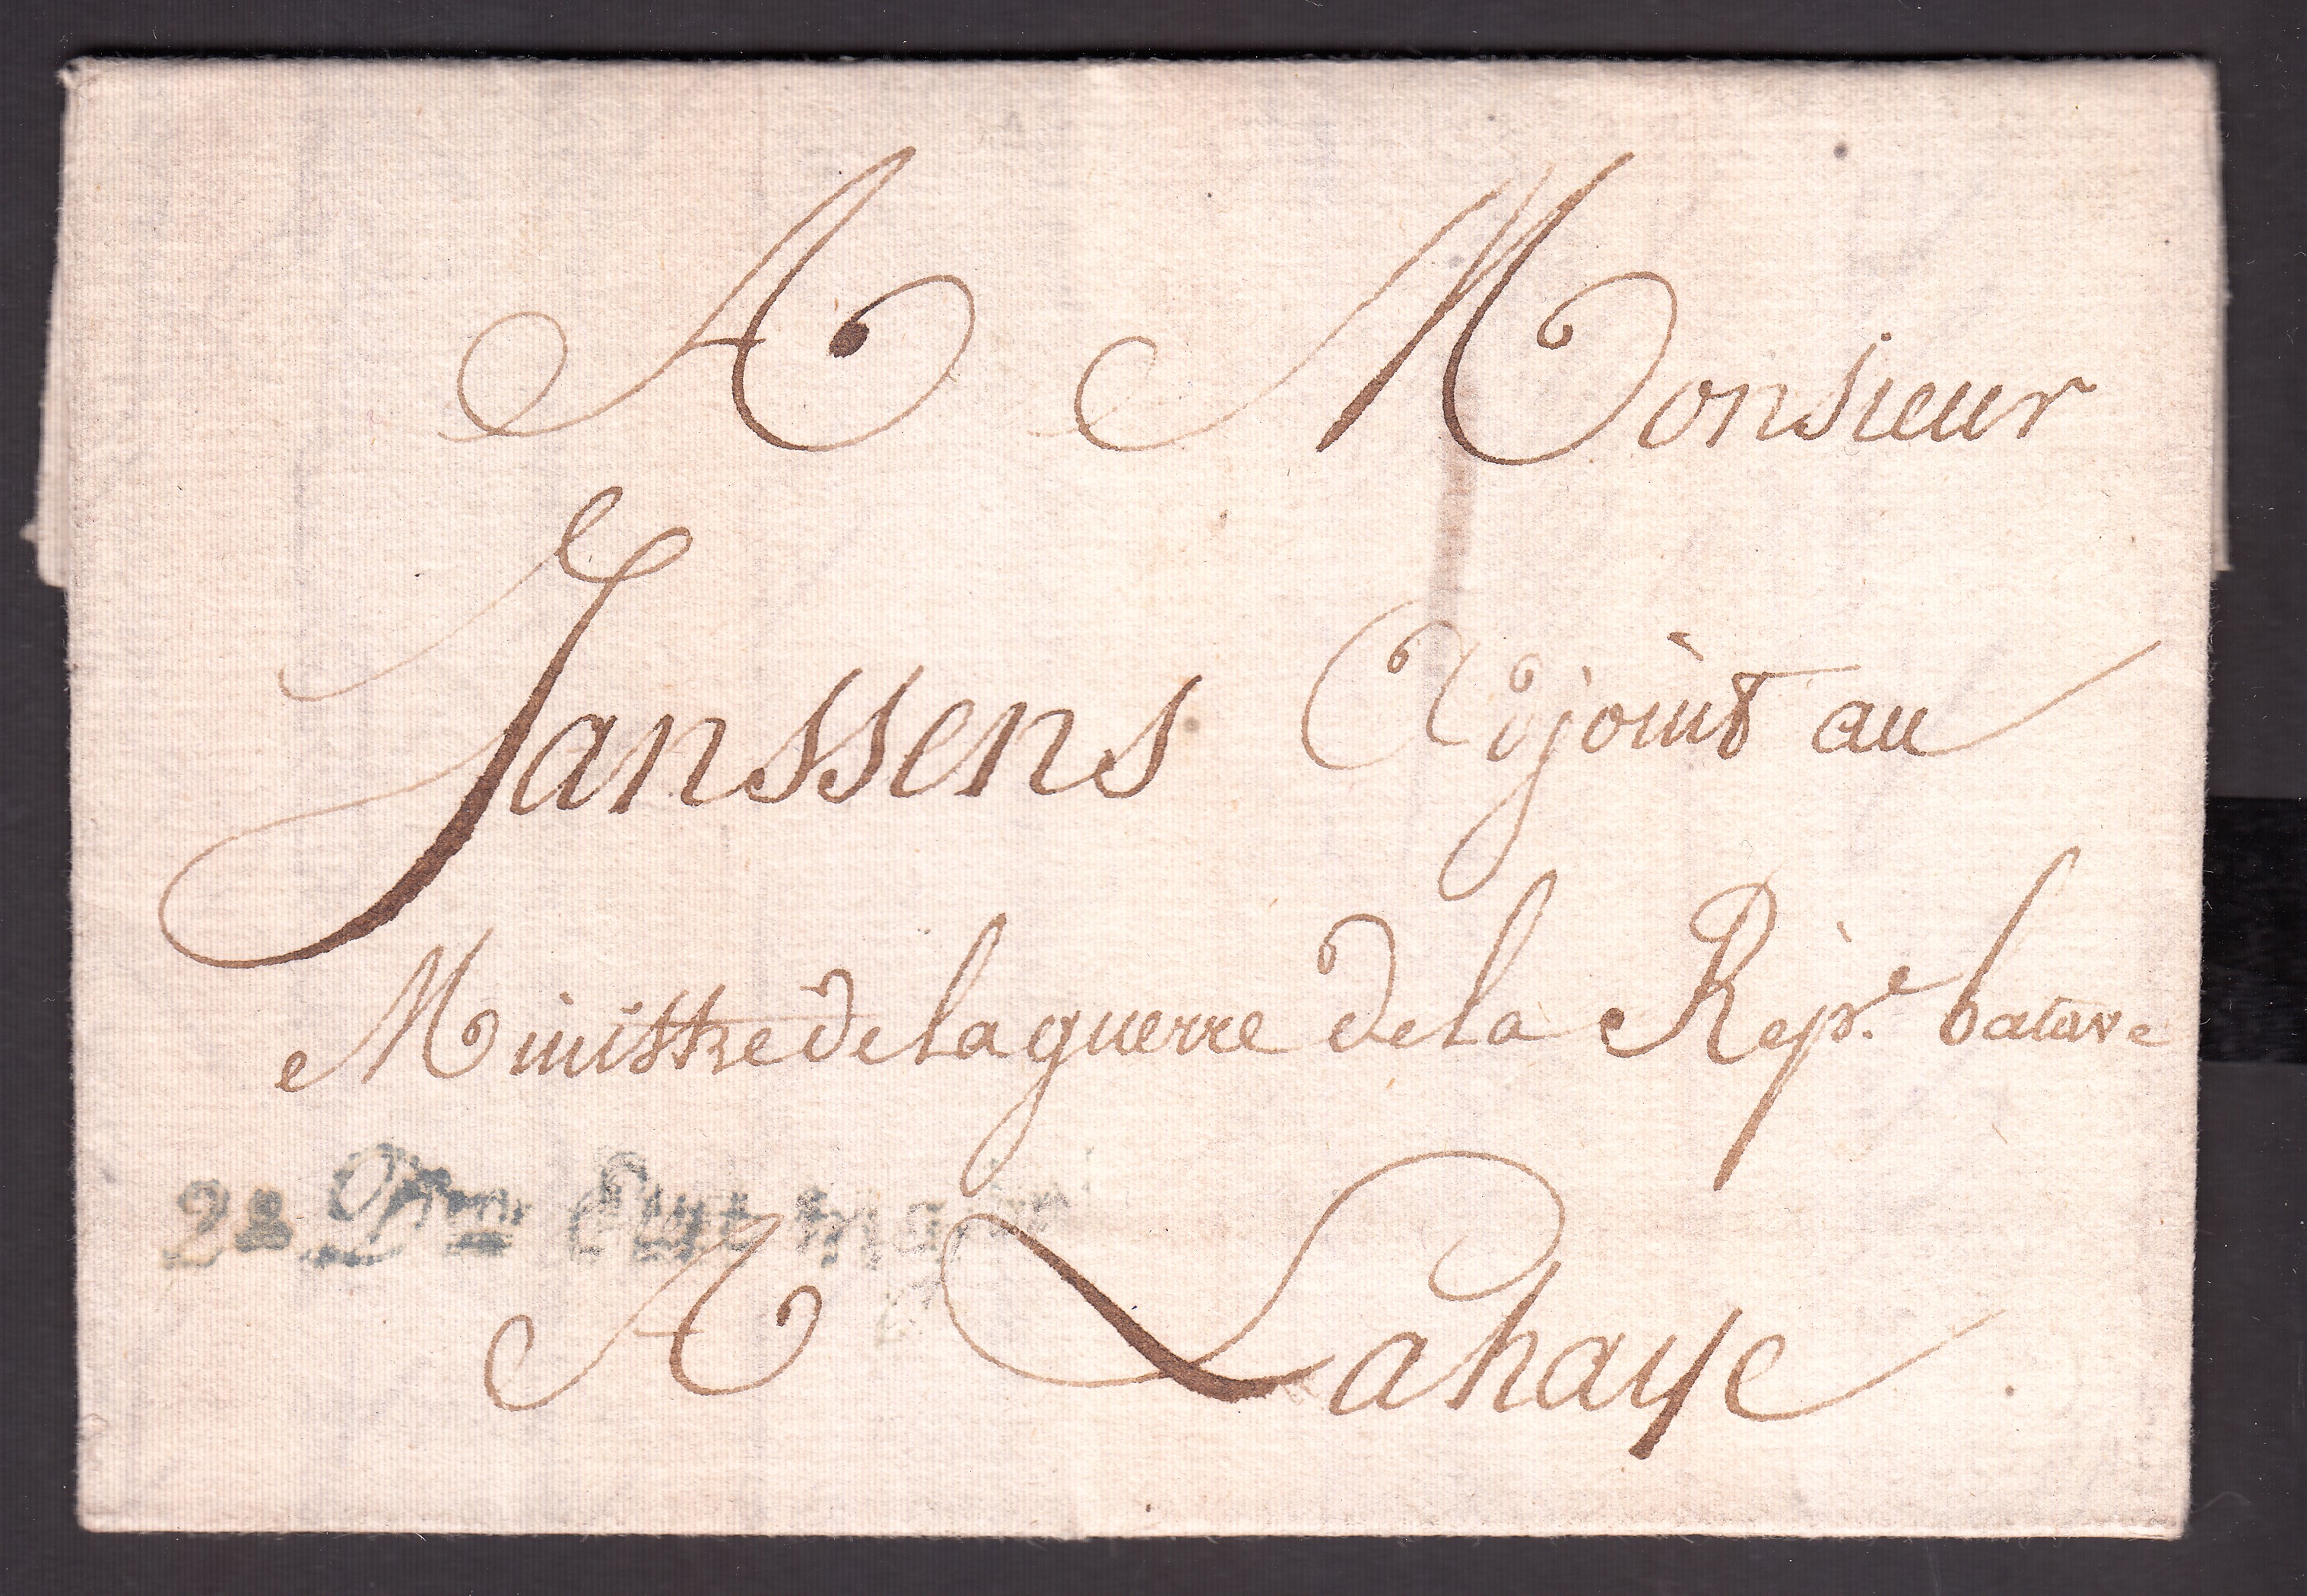 A Monsieur
Janssens Adjoint au
Ministre de la guerre de la Rep.e batave
2e Don
A Lahaye